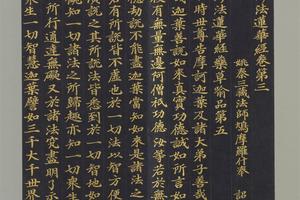 法蓮華經卷第三
姚秦三藏法師鳩摩羅什奉 詔
法蓮華經藥草喻品第五
時世尊告摩訶迦葉及諸大弟子善哉
哉迦葉善說如來真實功德誠如所言如
復有無量無邊阿僧祇功德汝等若於無
億劫說不能盡迦葉當知如來是諸法之
若有所說皆不虛也於一切法以智方便
演說之其所說法皆悉到於一切智地如
觀知一切諸法之所歸趣亦知一切眾生
心所行通達無礙又於諸法究盡明了示
眾生一切智慧迦葉譬如三千大千世界